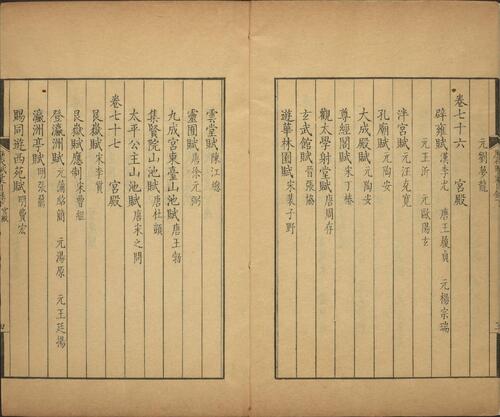 元劉夢龍
卷七十六 宮殿
辟雍賦漢李尤 唐王履貞 元楊宗瑞
元王沂 元歐陽玄
泮宮賦元汪克寬
孔廟賦元陶安
大成殿賦元陶安
尊經閣賦宋丁椿
觀太學射堂賦唐周存
玄武館賦晉張協
遊華林園賦宋裴子野
雲堂賦陳江總
靈囿賦唐徐元弼
九成宮東臺山池賦唐王勃
集賢院山池賦唐杜頠
太平公主山池賦唐宋之問
卷七十七 宮殿
艮嶽賦宋李質
艮嶽賦應制宋曹組
登瀛洲賦元蒲紹簡 元湯原 元王廷揚
瀛洲亭賦明張鼐
賜同遊西苑賦明費宏